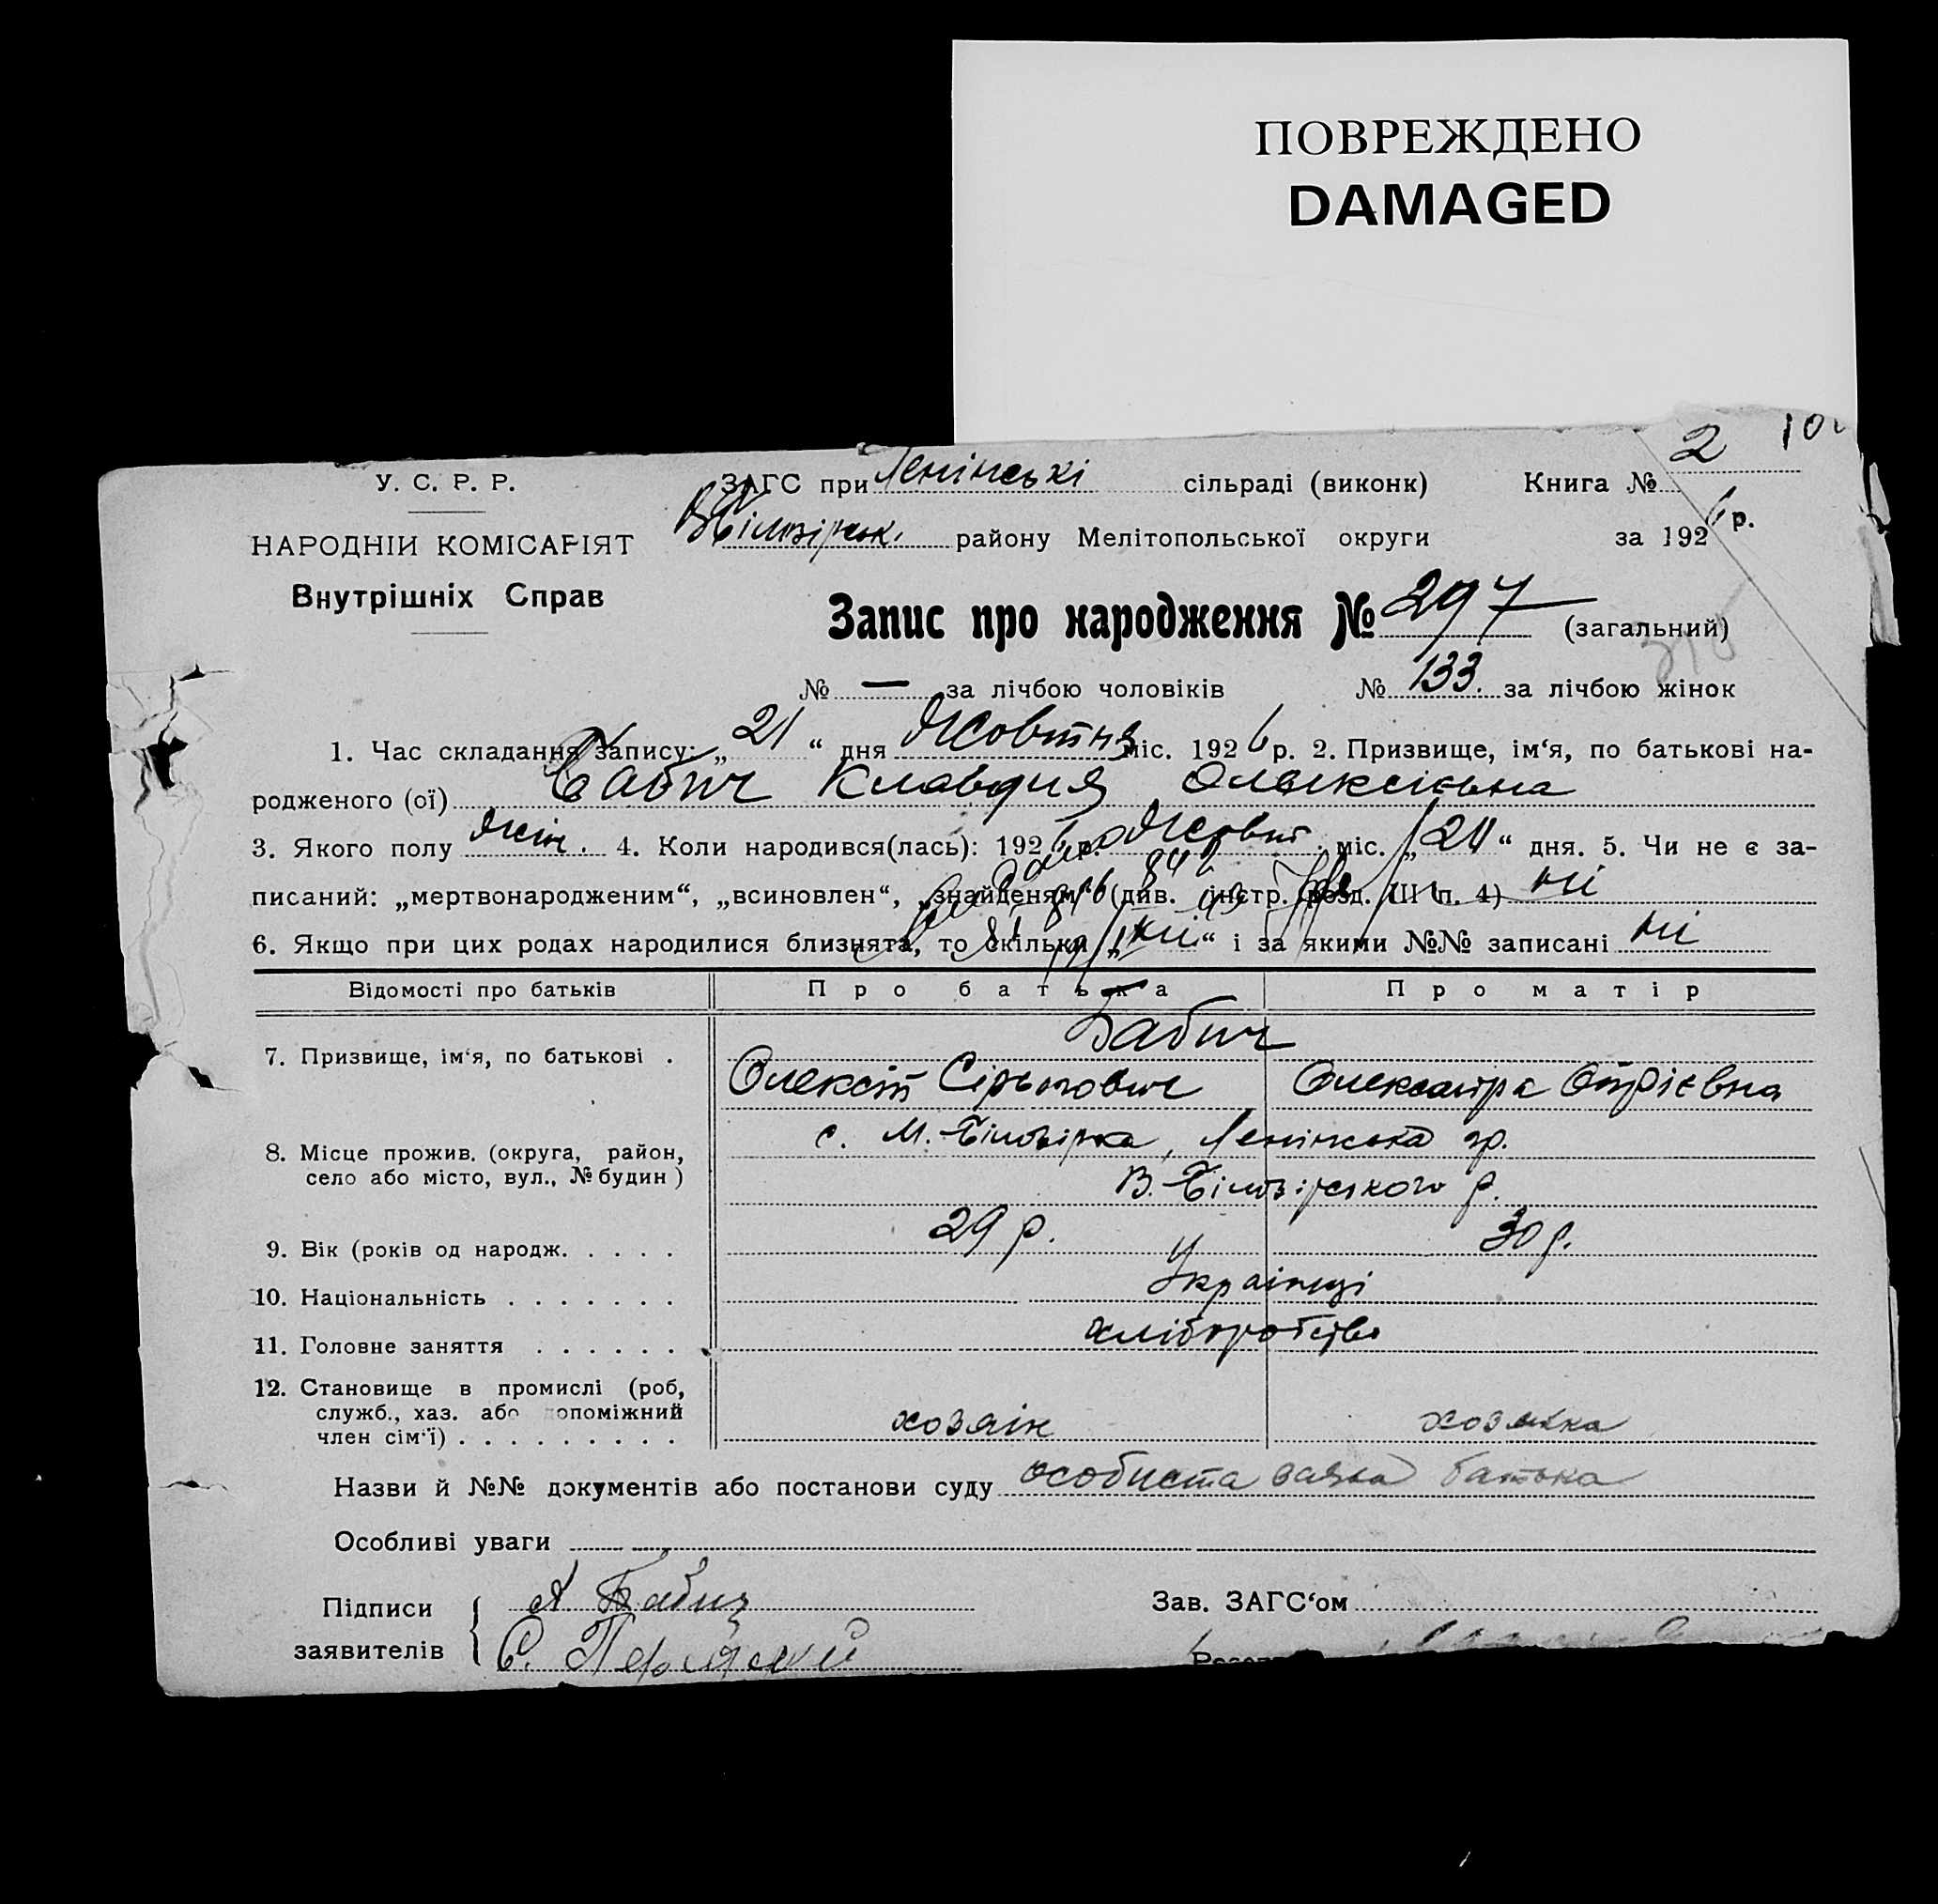 ПОВРЕЖДЕНО
DAMAGED
2 10
У. С. Р. Р.
ЗАГС при Ленінські сільраді (виконк) Книга №
НАРОДНІЙ КОМІСАРІЯТ
району Мелітопольської округи за 1926 р.
Внутрішніх Справ
Запис про народження № 297 (загальний)
315
№ — за лічбою чоловіків № 133. за лічбою жінок
1. Час складання запису: „21“ дня Жовтня міс. 1926 р. 2. Призвище, ім‘я, по батькові на-
родженого (ої) Бабич Клавдия Олексієвна
3. Якого полу жін. 4. Коли народився(лась): 1926 р. Жовт. міс. „20“ дня. 5. Чи не є за-
писаний: „мертвонародженим“, „всиновлен“, „знайденям“ (див. інстр. розд. III п. 4) ні
6. Якщо при цих родах народилися близнята, то скільки „ні“ і за якими №№ записані ні
Відомості про батьків Про батька Про матір
Бабич
7. Призвище, ім‘я, по батькові .
Олексій Олександра
с. М.-Білозірка, Ленінська
8. Місце прожив. (округа, район,
село або місто, вул., № будин)
В.-Білозірського р.
9. Вік (років од народж. . . . . 29 р. 30 р.
10. Національність . . . . . . . Українці
11. Головне заняття . . . . . . хліборобство
12. Становище в промислі (роб,
служб., хаз. або допоміжний
член сім‘ї) . . . . . . . . . хозяін хозяйка
Назви й №№ документів або постанови суду особиста заява батька
Особливі уваги
Підписи
заявителів
А Бабич
С.
Зав. ЗАГС‘ом